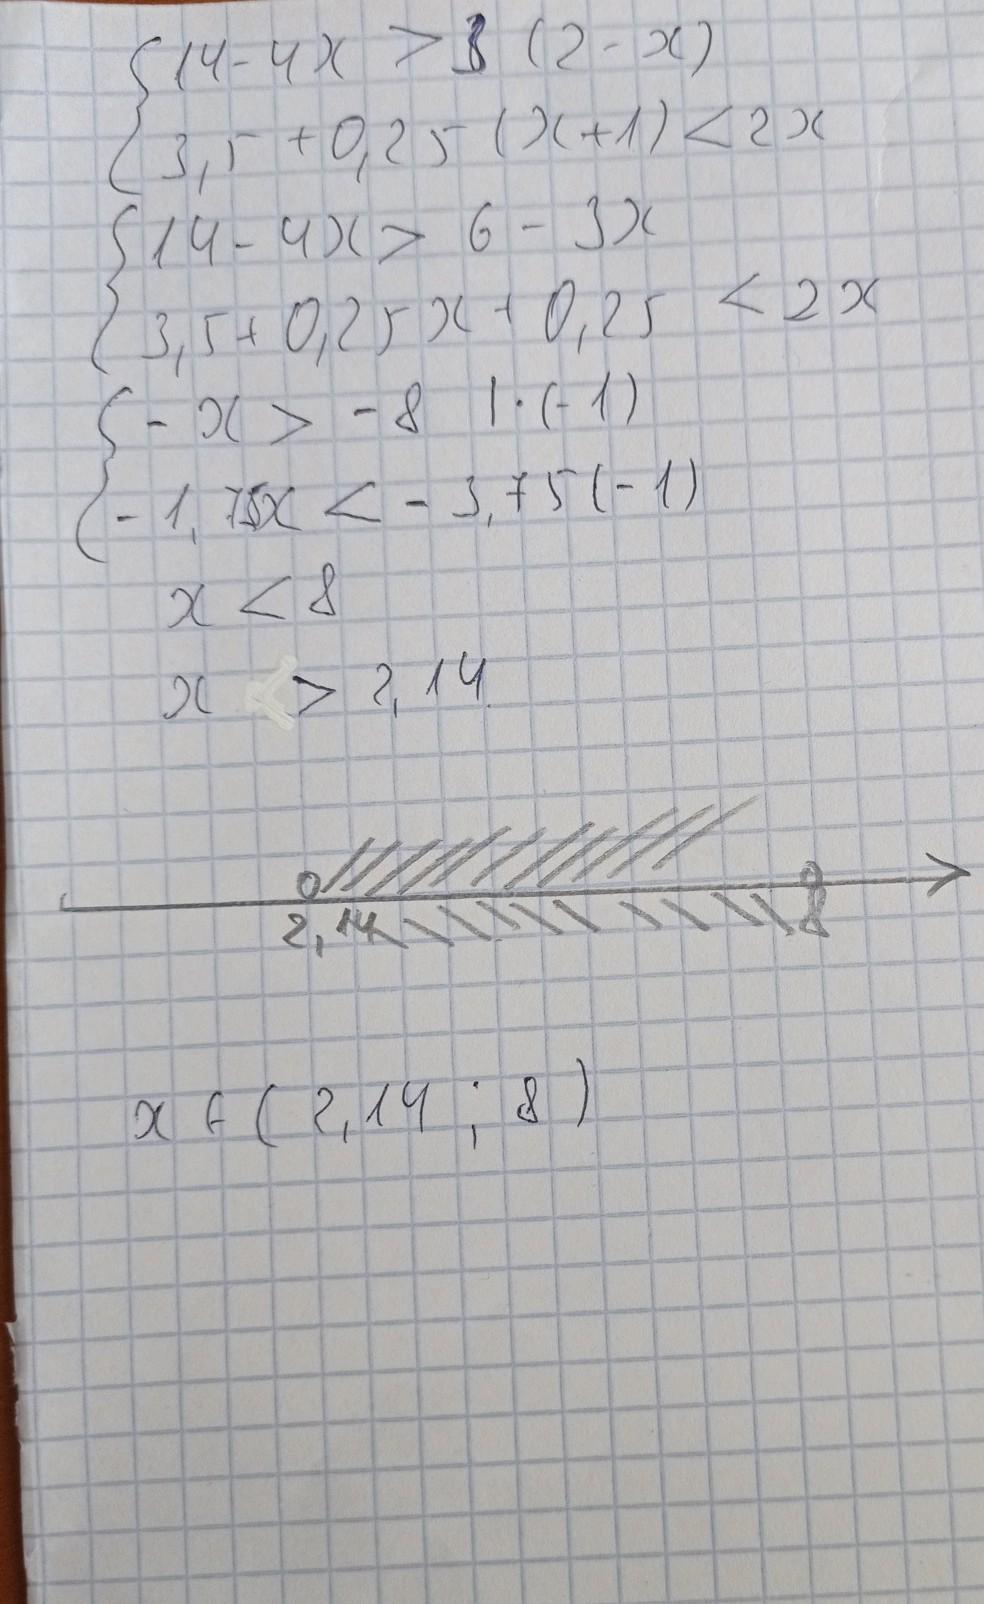 {14-4x > 3 (2-x)
{3,5 +0,25 (x+1) < 2x
{14-4x > 6 - 3x
{3,5+0,25x+0,25 < 2x
{-x > -8 |·(-1)
{-1,75x < -3,75(-1)
x < 8
x > 2,14
2,14 8
x ∈ ( 2,14 ; 8 )